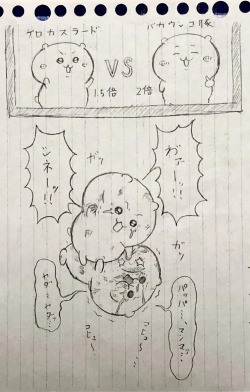 ゲロカスラード
バカウンコ豚
VS
1.5倍
2倍
わァーッ!!
シネーッ!!
ガッ
ガッ
パッパ…マンマ…
ヤダ…ヤダ…
コヒュ〜
コヒュ〜